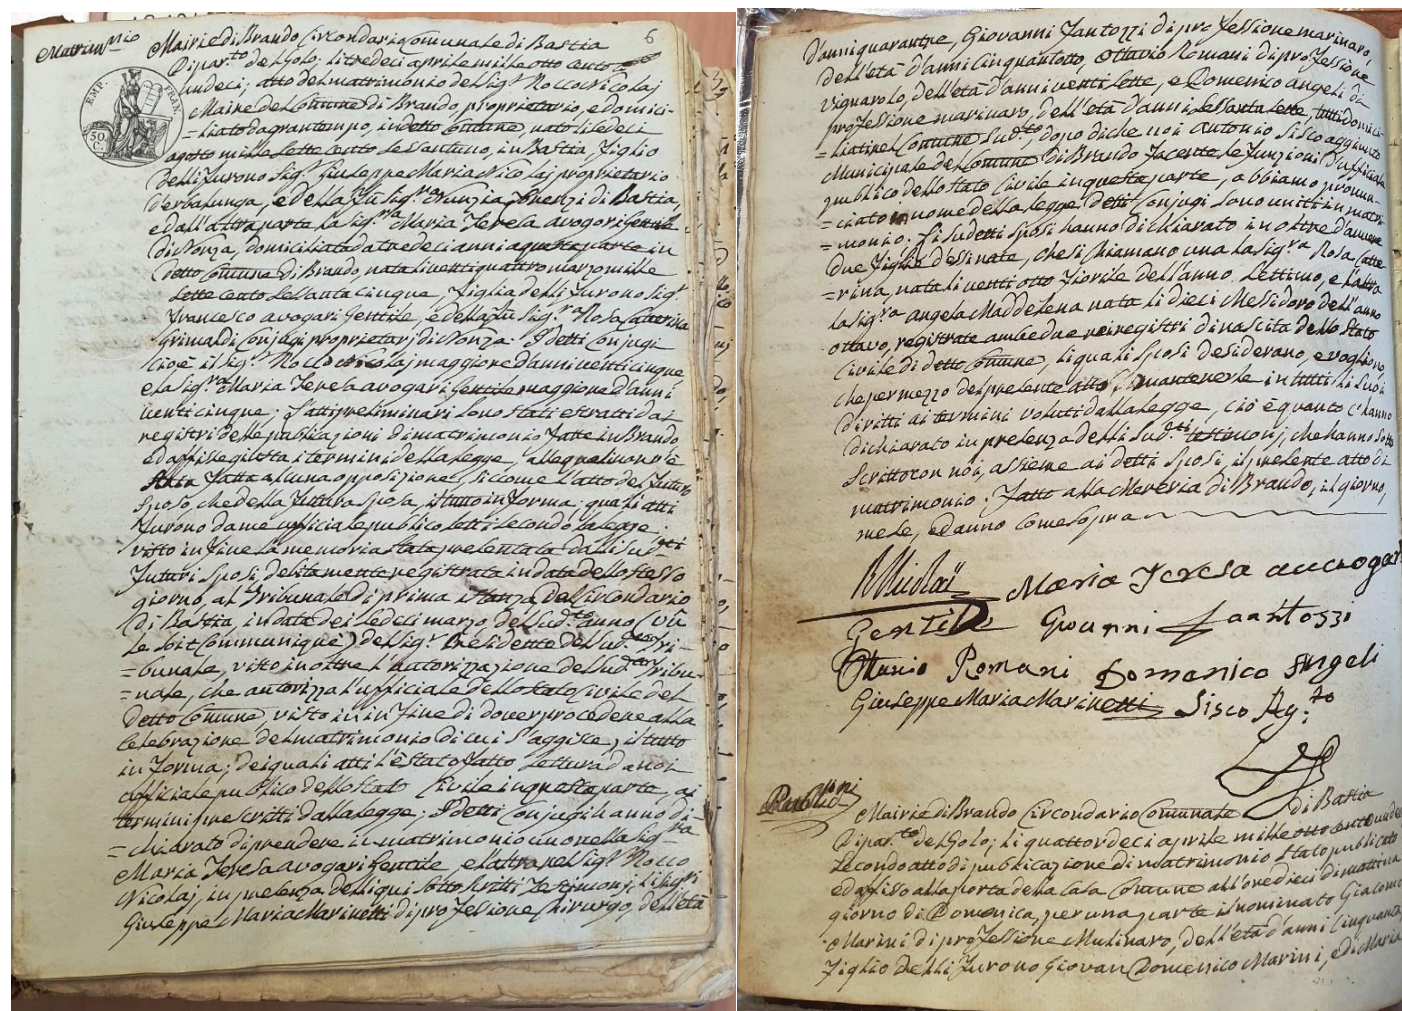 Matrim.nio
6
EMP. FRAN.
50 C.
Mairie di Brando Circondario Comunale di Bastia
Dipar.to del Golo; li tredeci aprile mille otto cento
undeci; atto del matrimonio del Sig.r Rocco Nicolaj
Maire del Comune di Brando, proprietario, e domici-
=liato da gran tempo, in detto Comune, nato li sedeci
agosto mille sette cento sessantuno, in Bastia, figlio
delli furono Sig.r Giuseppe Maria Nicolaj proprietario
d'erbalunga, e della fù Sig.ra Nunzia Brenzi di Bastia,
e dall'altra parte la Sig.ra Maria Teresa avogari Gentile
di Nonza, domiciliata da tredeci anni a questa parte in
detto Comune di Brando, nata li venti quattro marzo mille
sette cento sessanta cinque, figlia delli furono Sig.r
Francesco avogari Gentile, e della fù Sig.ra Rosa Catterina
Grimaldi Conjugi proprietarj di Nonza. I detti Conjugi
cioè il Sig.r Rocco Nicolaj maggiore d'anni venti cinque,
e la Sig.ra Maria Teresa avogari Gentile maggiore d'anni
venti cinque; gl'atti preliminari sono stati estratti dai
registri delle publicazioni di matrimonio fatte in Brando
ed affisse giusta i termini della legge, alle quali non v'è
stata fatta alcuna opposizione, siccome l'atto del futuro
sposo, che della futura sposa, il tutto in forma; quali atti
furono da me ufficiale publico letti secondo la legge;
visto in fine la memoria stata presentata dalli sud.ti
futuri sposi, debitamente registrata in data dello stesso
giorno, al Tribunale di prima istanza del Circondario
di Bastia, in data dei sedeci marzo del sud.to anno (vû
le soit Communiqué) del Sig.r Presidente del sud.to Tri-
=bunale, visto inoltre l'autorizazione del sud.to Tribu-
=nale, che autorizza l'ufficiale dello stato Civile del
detto Comune, visto in fine di dover procedere alla
celebrazione del matrimonio di cui s'aggisce, il tutto
in forma; dei quali atti l'è stato fatto lettura da noi
officiale publico dello stato Civile in questa parte, ai
termini prescritti dalla legge. I detti Conjugi hanno di-
=chiarato di prendere in matrimonio uno nella Sig.ra
Maria Teresa avogari Gentile e l'altra nel Sig.r Rocco
Nicolaj, in presenza delli qui sotto scritti Testimonj, li Sig.ri
Giuseppe Maria Marinetti di professione Chirurgo, dell'età
d'anni quarantre, Giovanni Fantozzi di professione marinaro,
dell'età d'anni cinquantotto, Ottavio Romani di professione
vignarolo, dell'età d'anni venti sette, e Domenico Angeli di
professione marinaro, dell'età d'anni sessanta sette, tutti domici-
=liati nel Comune sud.to, dopo di che noi Antonio Sisco aggiunto
Municipale del Comune di Brando facente le funzioni d'uffiziale
publico dello stato Civile in questa parte, abbiamo pronun-
=ciato in nome della legge: detti Conjugi sono uniti in matri-
=monio. Li sudetti sposi hanno dichiarato inoltre d'avere
due figlie d'essi nate, che si chiamano una la Sig.ra Rosa Catte
=rina, nata li venti otto Fiorile dell'anno settimo, e l'altra
la Sig.ra Angela Maddalena nata li dieci Mesidoro dell'anno
ottavo, registrate ambedue nei registri di nascita dello stato
Civile di detto Comune, li quali sposi desiderano, e vogliono
che per mezzo del presente atto, mantenerle in tutti li suoi
diritti ai termini voluti dalla legge, ciò è quanto c'hanno
dichiarato in presenza delli sud.ti testimonj, che hanno sotto
scritto con noi, assieme ai detti sposi, il presente atto di
matrimonio. Fatto alla Mereria di Brando, il giorno,
mese, ed anno come sopra
RNicolaÿ Maria Teresa avvogari
Gentile Giovanni Fantozzi
Ottavio Romani Domenico Angeli
Giuseppe Maria Marinetti Sisco Ag.to
Publicni
Mairie di Brando Circondario Comunale di Bastia
Dipar.to del Golo; li quattordeci aprile mille otto cento undeci
secondo atto di publicazione di matrimonio stato publicato
ed affisso alla porta della casa Comune all'ore dieci di mattina
giorno di Domenica, per una parte il nominato Giacomo
Marini di professione Mulinaro, dell'età d'anni cinquanta
figlio delli furono Giovan Domenico Marini, e di Maria